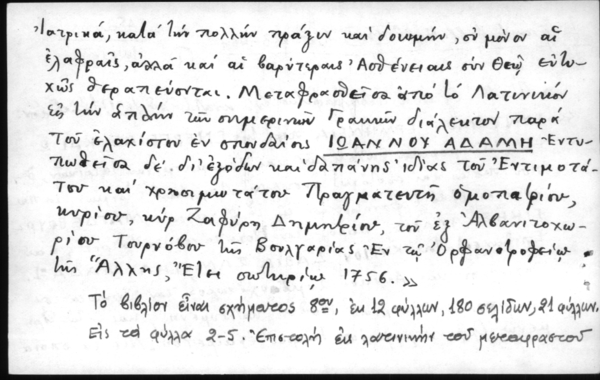 Ἰατρικά, κατά τήν πολλήν πρᾶξιν καί δοκιμήν, οὐ μόνον αἱ
ἐλαφραῖς, ἀλλά καί αἱ βαρύτεραις Ἀσθένειαις σύν Θεῷ εὐτυ-
χῶς θεραπεύονται. Μεταφρασθεῖσα ἀπό τό Λατινικόν
εἰς τήν ἁπλῆν τῶν σημερινῶν Γραικῶν διάλεκτον παρά
τοῦ ἐλαχίστου ἐν σπουδαίοις ΙΩΑΝΝΟΥ ΑΔΑΜΗ Ἐντυ-
πωθεῖσα δέ δι' ἐξόδων καί δαπάνης ἰδίας τοῦ Ἐντιμοτά-
του καί χρησιμωτάτου Πραγματευτῆ ὁμοπατρίου,
κυρίου, κύρ Ζαφύρη Δημητρίου, τοῦ ἐξ Ἀλβανιτοχω-
ρίου Τουρνόβου τῆς Βουλγαρίας Ἐν τῷ Ὀρφανοτροφείῳ
τῆς Ἅλλης, Ἔτει σωτηρίῳ 1756. »
Τό βιβλίον εἶναι σχήματος 8ου, ἐκ 12 φύλλων, 180 σελίδων, 21 φύλλων.
Εἰς τά φύλλα 2-5. Ἐπιστολή ἐκ λατινικήν τοῦ μεταφραστοῦ